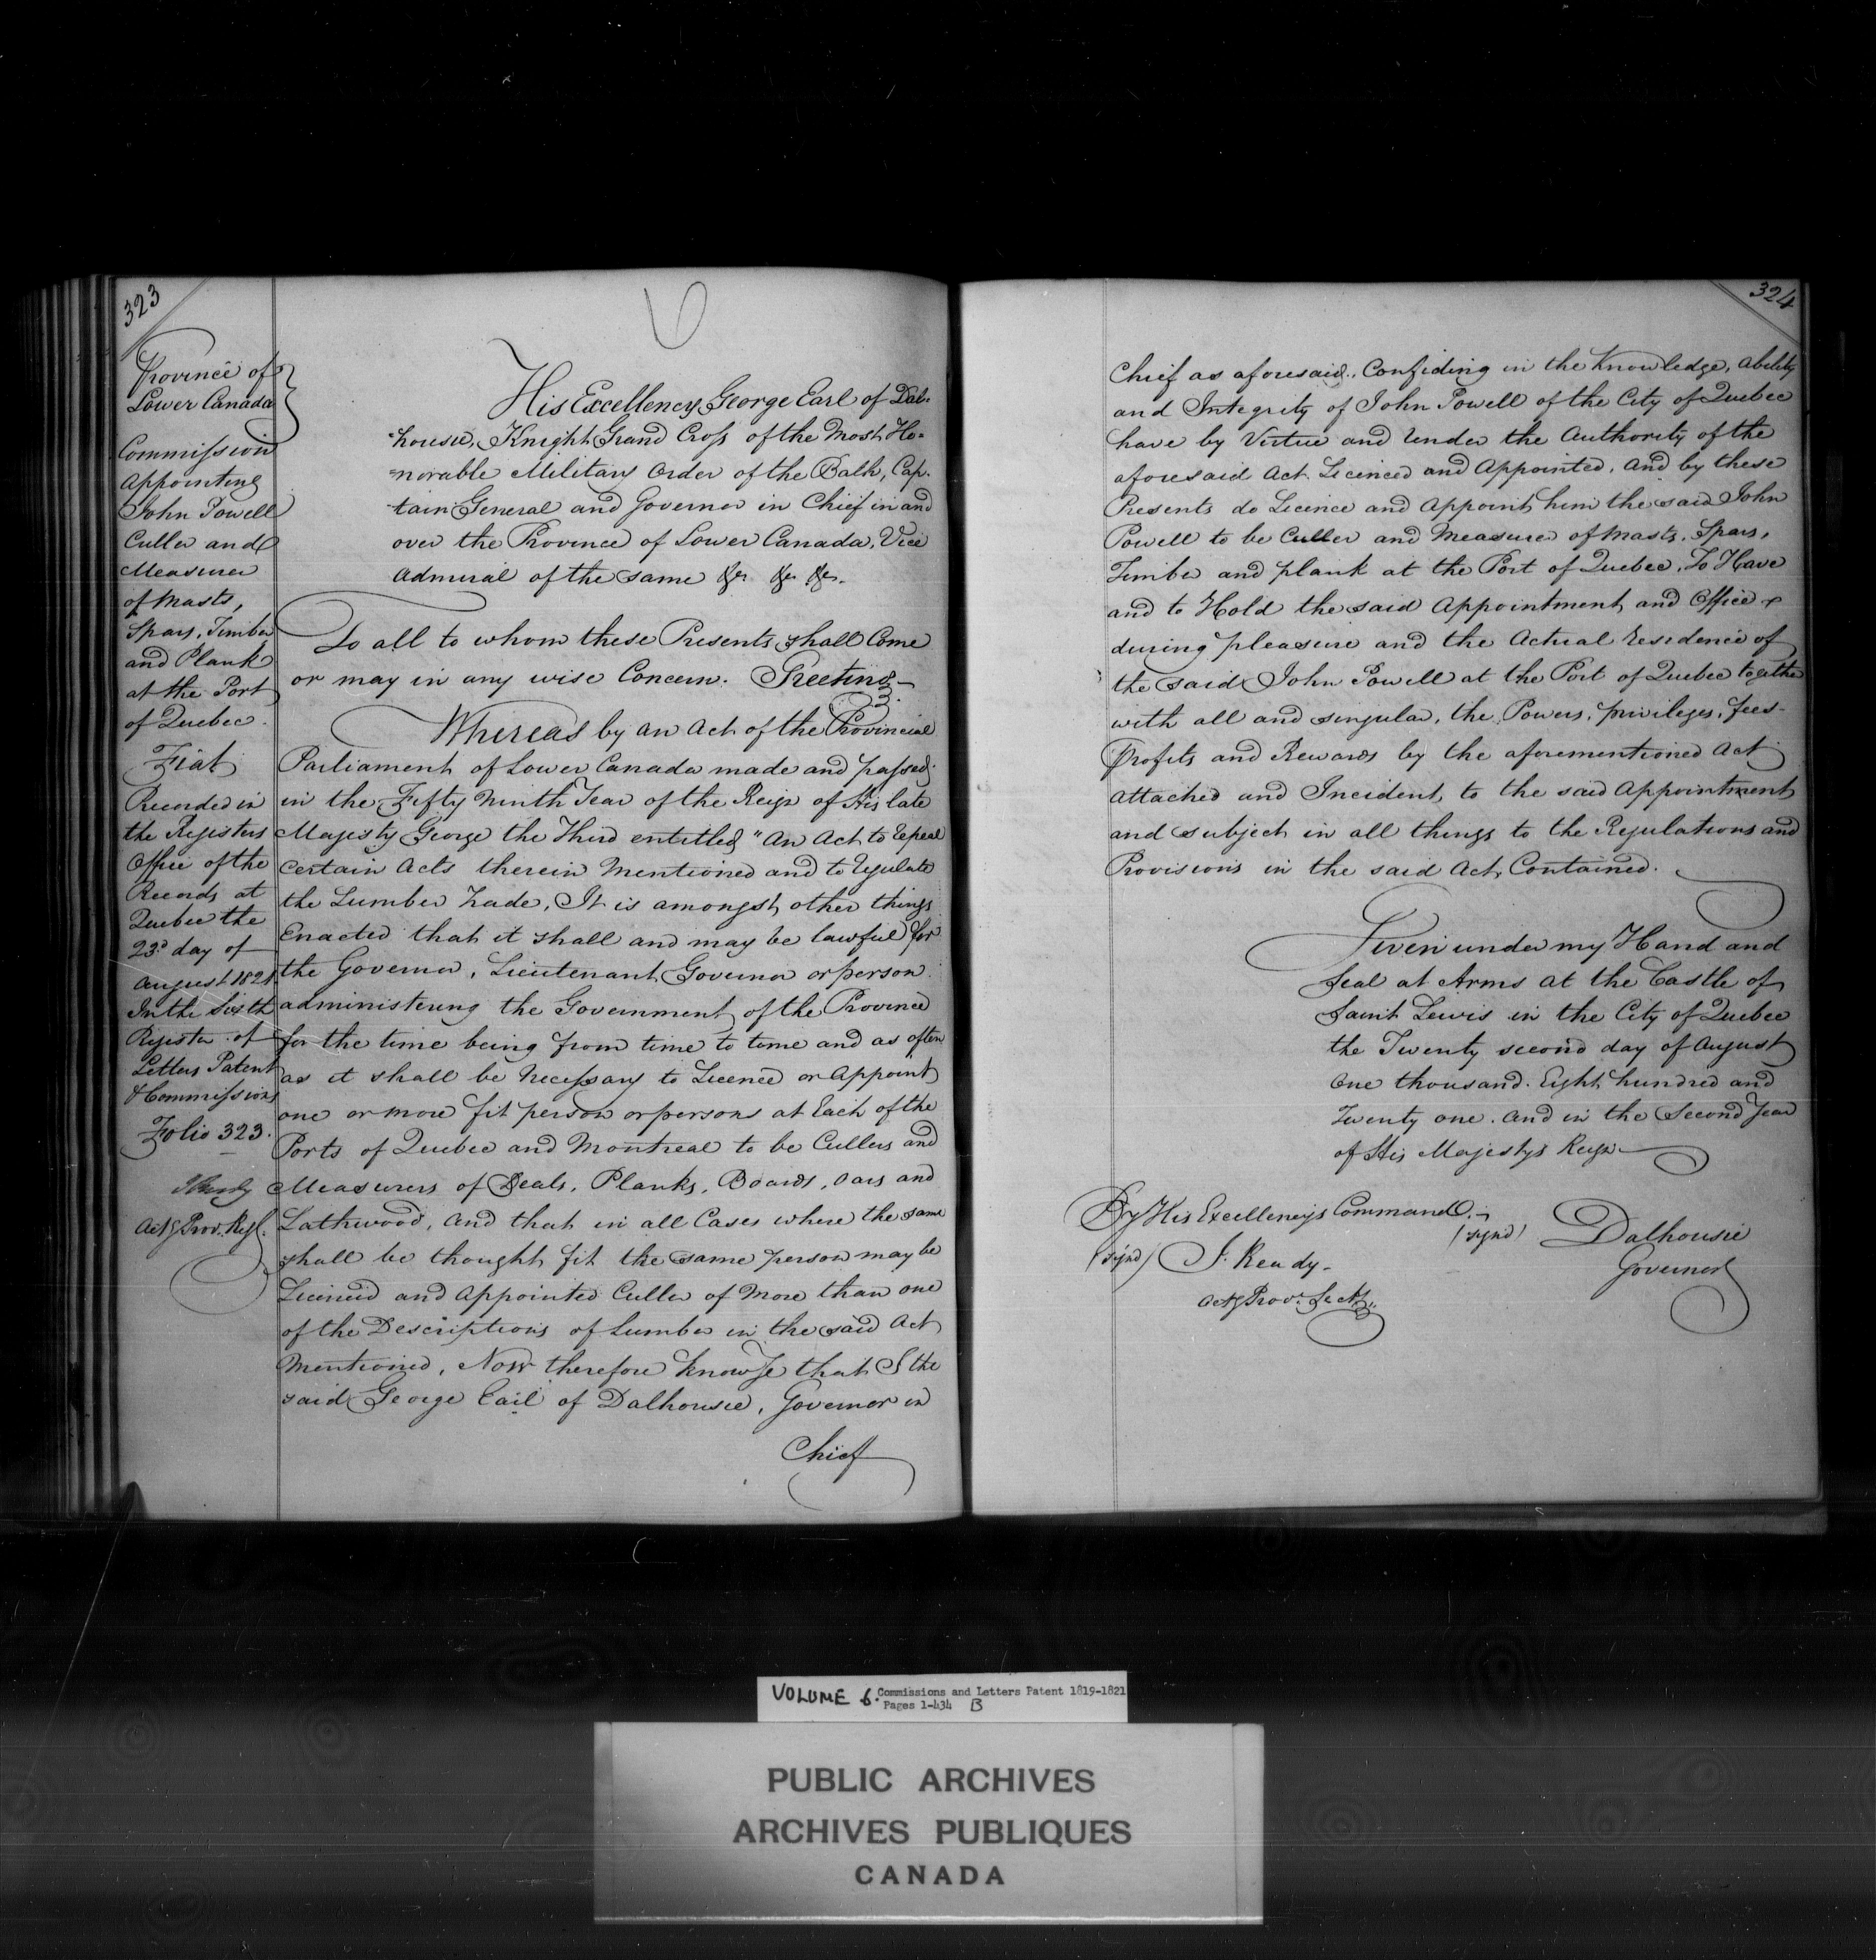 323
Province of
Lower Canada
Commission
Appointing
John Powell
Culler and
Measurer
of Masts,
Spars, Timber
and Plank
at the Port
of Quebec.
Fiat
Recorded in
the Registers
Office of the
Records at
Quebec the
23d day of
August 1821
In the Sixth
Register of
Letters Patent
& Commissions
Folio 323.
Actg Prov. Regr.
His Excellency George Earl of Dal-
-housie, Knight Grand Cross of the Most Ho=
=norable Military Order of the Bath, Cap-
-tain General and Governor in Chief in and
over the Province of Lower Canada, Vice
Admiral of the same &c &c &c.
To all to whom these Presents shall Come
or may in any wise Concern. Greeting
Whereas by an Act of the Provincial
Parliament of Lower Canada made and passed
in the Fifty Ninth Year of the Reign of His late
Majesty George the Third entitled "An Act to Repeal
certain Acts therein Mentioned and to regulate
the Lumber Trade, It is amongst other things
Enacted that it shall and may be lawful for
the Governor, Lieutenant Governor or person
administering the Government of the Province
for the time being from time to time and as often
as it shall be Necessary to Licence or Appoint
one or more fit person or persons at Each of the
Ports of Quebec and Montreal to be Cullers and
Measurers of Deals, Planks, Boards, Oars and
Lathwood, and that in all Cases where the same
shall be thought fit the same person may be
Licenced and appointed Culler of More than one
of the Descriptions of Lumber in the said Act
Mentioned, Now therefore know Ye that I the
said George Earl of Dalhousie, Governor in
Chief
324
Chief as aforesaid, Confiding in the Knowledge, Ability
and Integrity of John Powell of the City of Quebec
have by Virtue and Under the Authority of the
aforesaid Act Licenced and Appointed, and by these
Presents do Licence and Appoint him the said John
Powell to be Culler and Measurer of Masts, Spars,
Timber and plank at the Port of Quebec, To Have
and to Hold the said Appointment and Office
during pleasure and the Actual residence of
the said John Powell at the Port of Quebec together
with all and singular, the Powers, privileges, fees
Profits and Rewards by the aforementioned Act
attached and Incident to the said Appointment
and subject in all things to the Regulations and
Provisions in the said Act Contained.
Given under my Hand and
Seal at Arms at the Castle of
Saint Lewis in the City of Quebec
the Twenty second day of August
One thousand Eight hundred and
Twenty one. and in the Second Year
of His Majestys Reign
By His Excellency's Command.
(signd) Dalhousie
Governor
(signd) J. Ready
Actg Prov. Secty.
VOLUME 6. Commissions and Letters Patent 1819-1821
Pages 1-434 B
PUBLIC ARCHIVES
ARCHIVES PUBLIQUES
CANADA